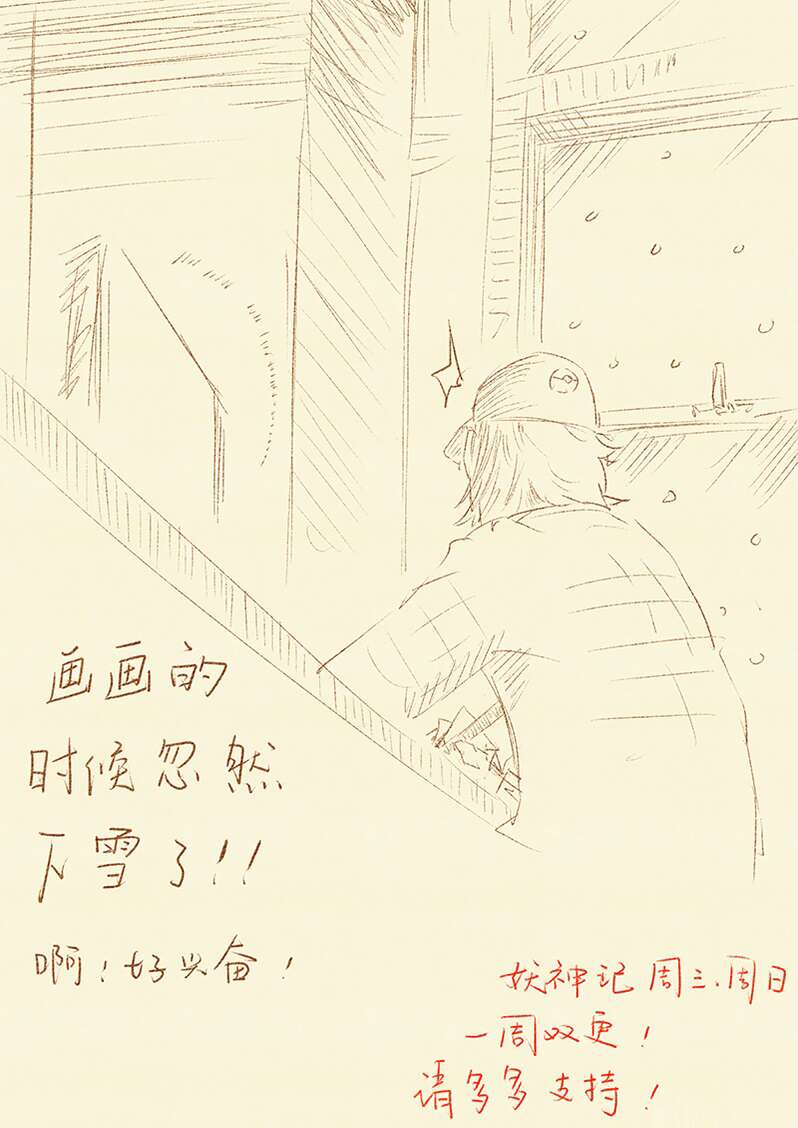 画画的
时候忽然
下雪了!!
啊!好兴奋!
妖神记 周三、周日
一周双更!
请多多支持!